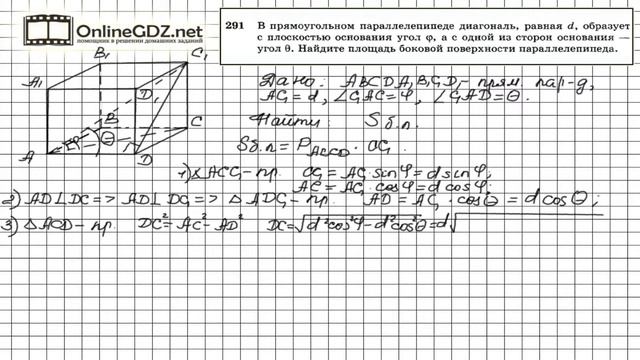 OnlineGDZ.net
помощник в решении домашних заданий
291 В прямоугольном параллелепипеде диагональ, равная d, образует
с плоскостью основания угол φ, а с одной из сторон основания —
угол θ. Найдите площадь боковой поверхности параллелепипеда.
B₁ C₁
A₁ D₁
B C
φ θ
A D
Дано: ABCDA₁B₁C₁D₁ - прям. пар-д,
AC₁ = d, ∠C₁AC = φ, ∠C₁AD = θ.
Найти: Sб.п.
Sб.п = PABCD · CC₁
1) △ACC₁ - пр. CC₁ = AC₁ sin φ = d sin φ,
AC = AC₁ cos φ = d cos φ;
2) AD ⊥ DC => AD ⊥ DC₁ => △ADC₁ - пр. AD = AC₁ · cos θ = d cos θ;
3) △ACD - пр. DC² = AC² - AD² DC = √d²cos²φ - d²cos²θ = d√